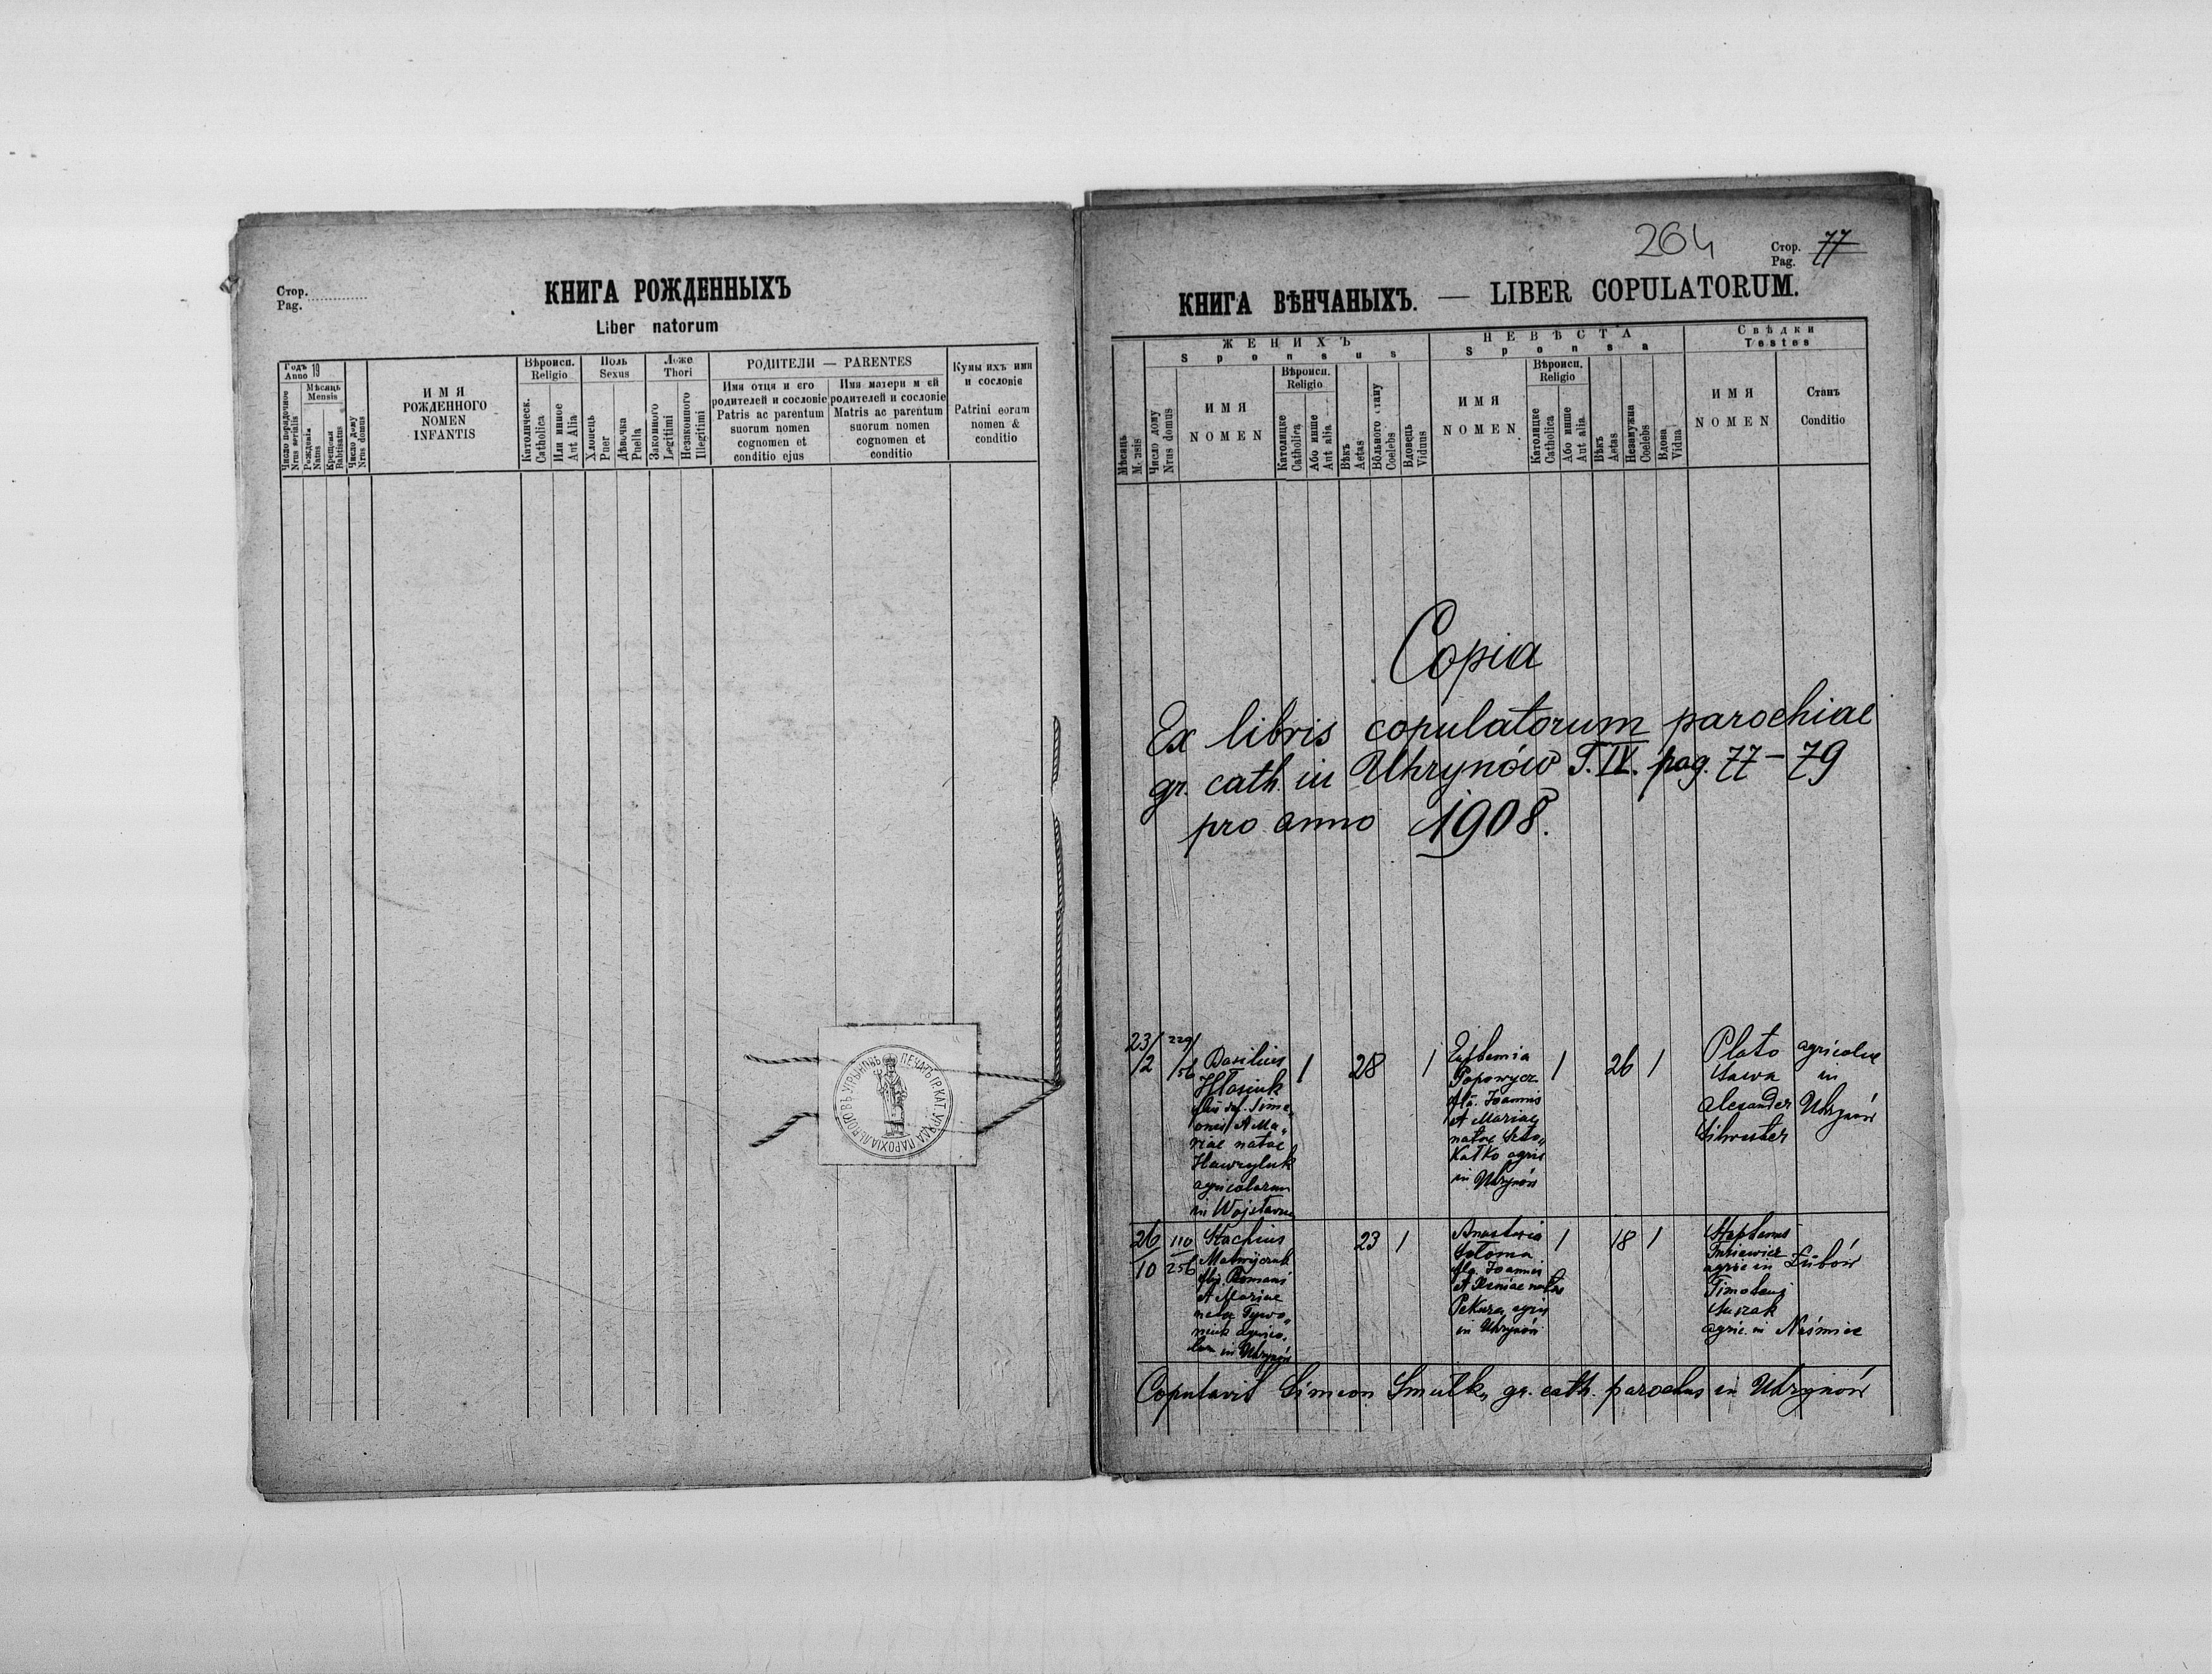 Стор.
Pag.
КНИГА РОЖДЕННЫХЪ
Liber natorum
Годъ 19
Anno
Мѣсяць
Mensis
Число порядочное
Nrus serialis
Рожденія
Natus
Крещенія
Babtisatus
Число дому
Nrus domus
ИМЯ
РОЖДЕННОГО
NOMEN
INFANTIS
Вѣроисп.
Religio
Католическ.
Catholica
Или инное
Aut Alia
Поль
Sexus
Хлопець
Puer
Дѣвочка
Puella
Ложе
Thori
Законного
Legitimi
Незаконного
Illegitimi
РОДИТЕЛИ — PARENTES
Имя отця и его
родителей и сословіе
Patris ac parentum
suorum nomen
cognomen et
conditio ejus
Имя матери и ей
родителей и сословіе
Matris ac parentum
suorum nomen
cognomen et
conditio
Кумы ихъ имя
и сословіе
Patrini eorum
nomen &
conditio
ПЕЧАТЬ ГР. КАТ. УРЯДА ПАРОХІАЛЬНОГО ВЪ УГРЫНОВѢ
264
Стор. 77
Pag.
КНИГА ВѢНЧАНЫХЪ. — LIBER COPULATORUM.
ЖЕНИХЪ
Sponsus
НЕВѢСТА
Sponsa
Свѣдки
Testes
Мѣсяць
Mensis
Число дому
Nrus domus
ИМЯ
NOMEN
Вѣроисп.
Religio
Католицке
Catholica
Або инше
Aut alia
Вѣкъ
Aetas
Вольного стану
Coelebs
Вдовець
Viduus
ИМЯ
NOMEN
Вѣроисп.
Religio
Католицке
Catholica
Або инше
Aut alia
Вѣкъ
Aetas
Незамужна
Coelebs
Вдова
Vidua
ИМЯ
NOMEN
Станъ
Conditio
Copia
Ex libris copulatorum parochiae
gr. cath. in Uhrynów T. IV. pag. 77-79
pro anno 1908.
23/2
229/56
Basilius
Hłasiuk
Sime„
onis et Ma„
riae natae
Hawryluk
agricolarum
in Wojsławice
1
28
1
Euphemia
Popowycz
fila. Joannis
et Mariae
natae
agric
in Uhrynów
1
26
1
Plato agricolae
Sawa in
Alexander Uhrynów
Silwester
26/10
110
256
Stachius
Matwijczuk
Romani
et Mariae
natae Tywo„
niuk agrico„
larum in Uhrynów
23
1
Anastasia
Sołoma
fila. Joannis
et Xeniae natae
Pekura agric
in Uhrynów
1
18
1
Stephanus
agric in Żubów
Timoteus
Suszak
agric. in Naśmice
Copulavit Simeon Smulka, gr. cath. parochus in Uhrynów